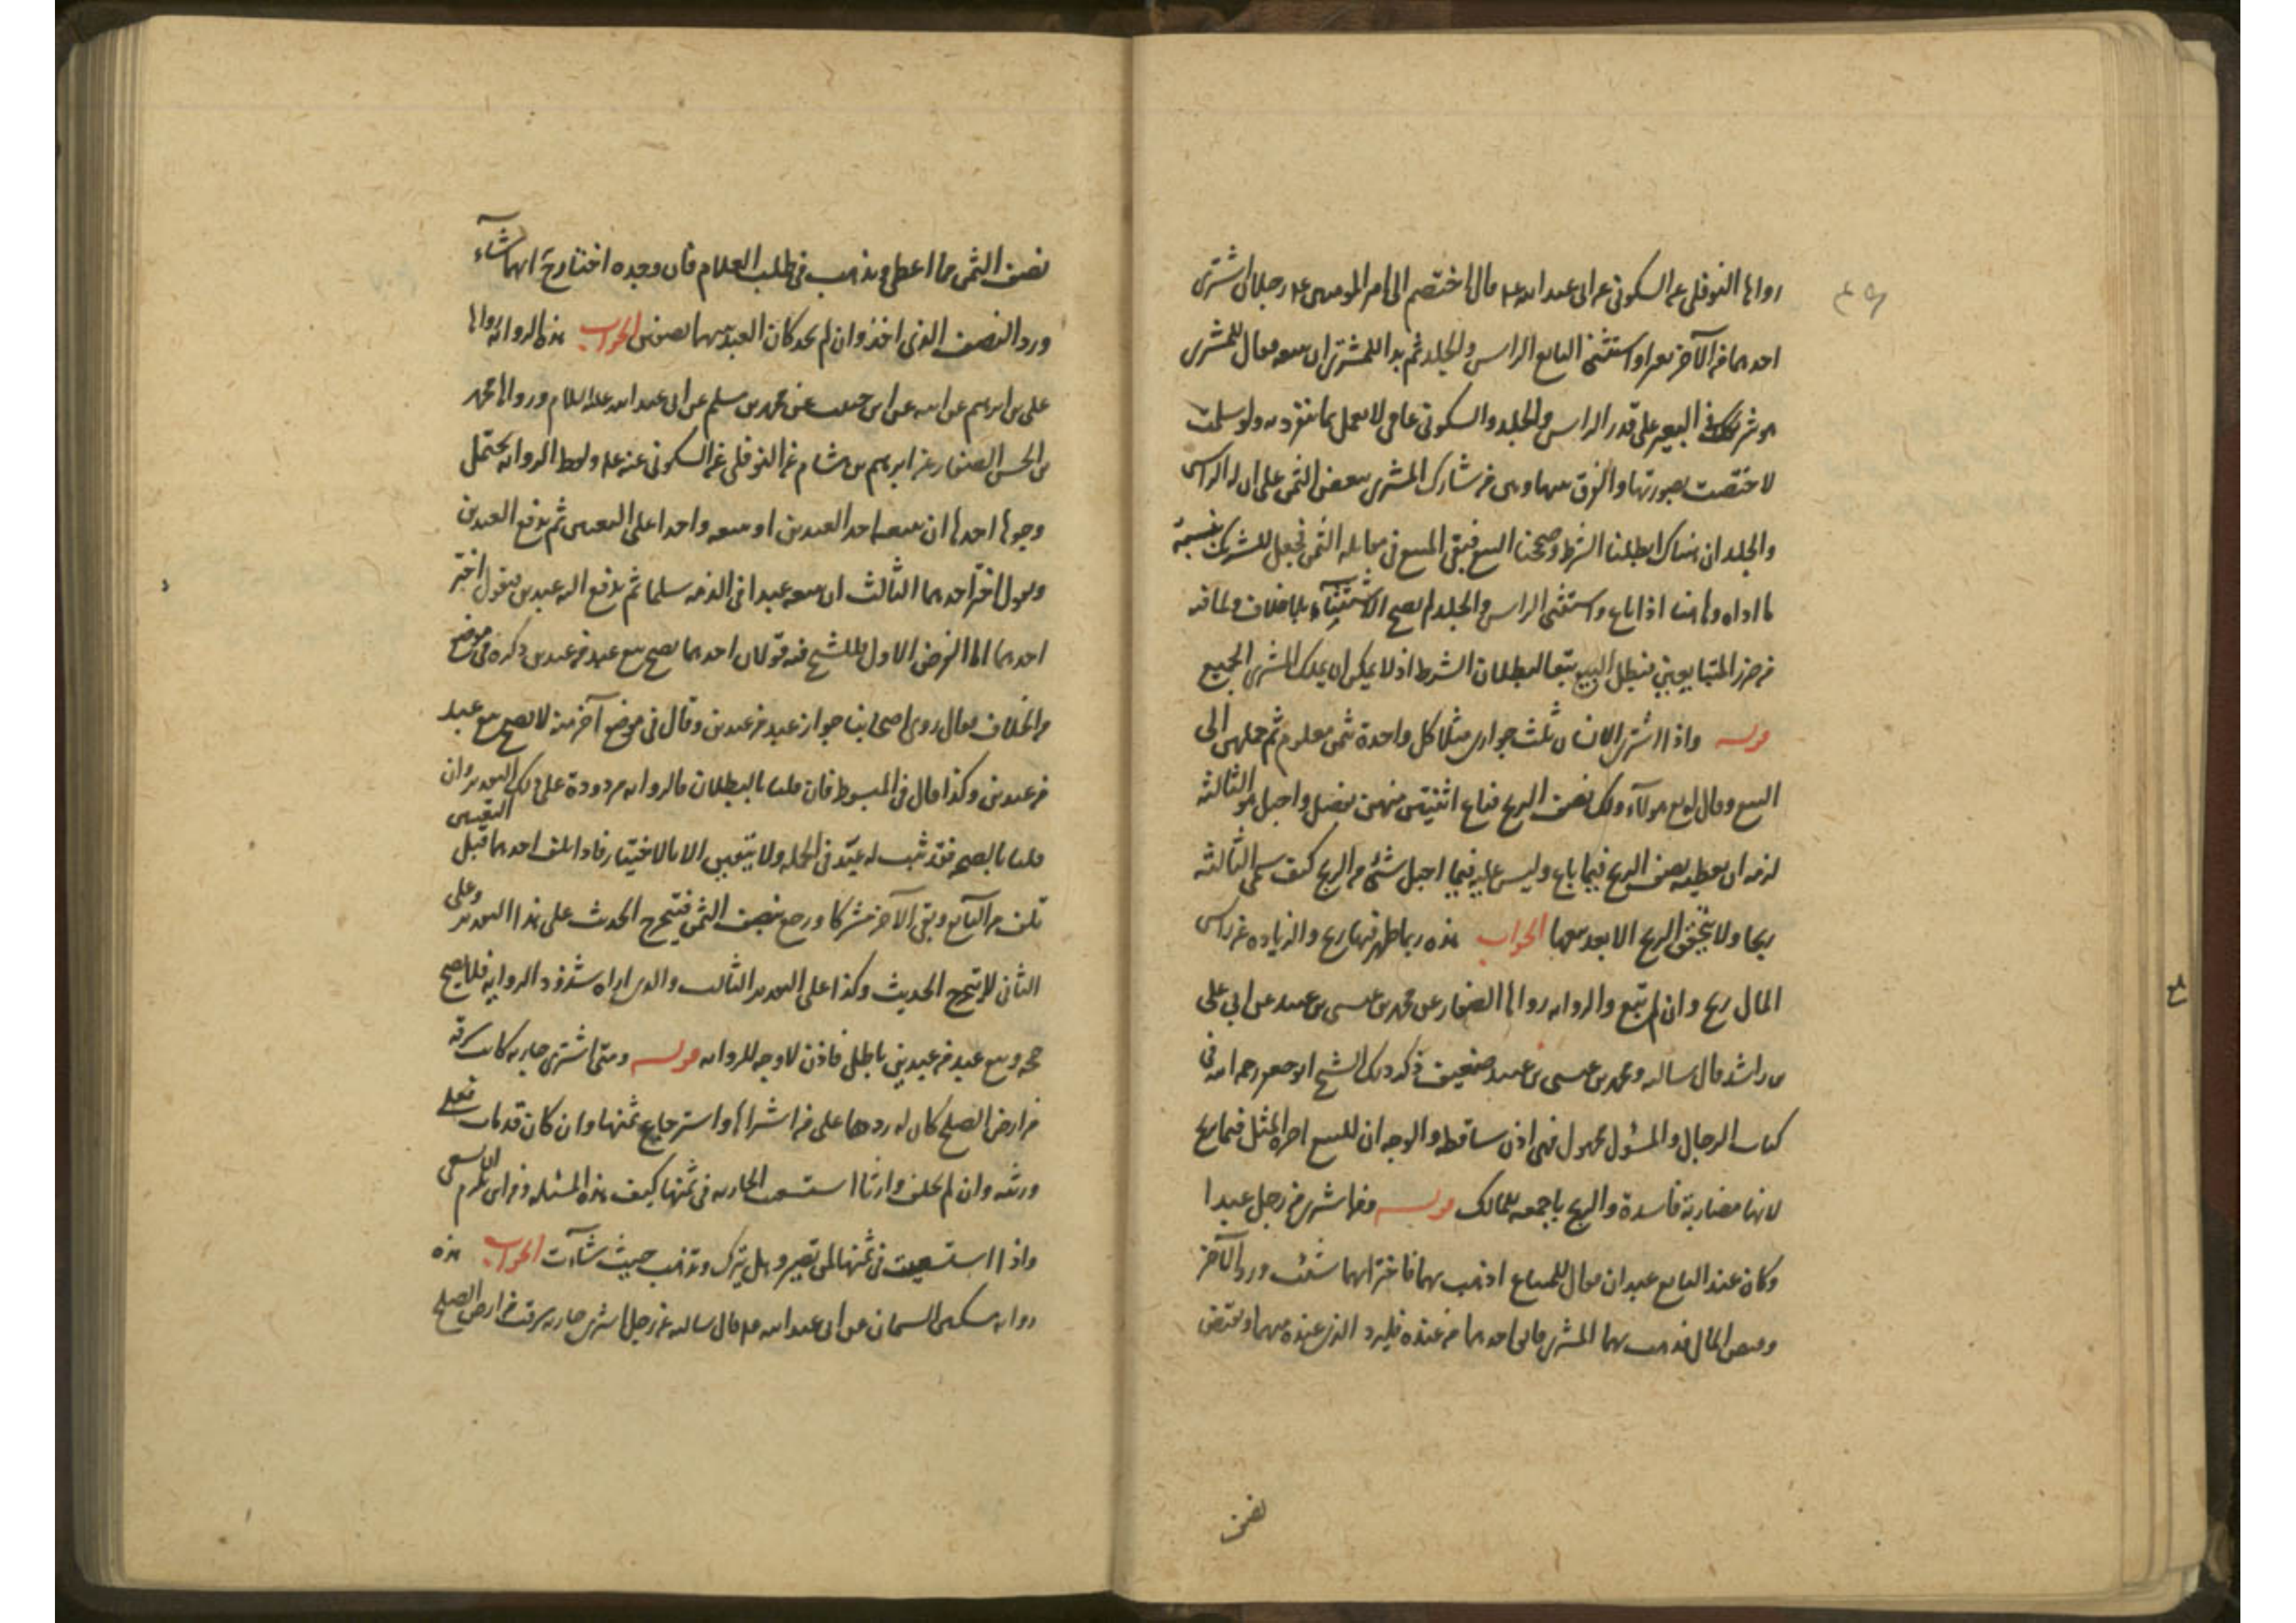 رواها النوفلي عن السكوني عن ابي عبد الله ع قال اختصم الى امير المومنين ع رجلان اشترى
احدهما من الآخر بعيرا واستثنى البايع الراس والجلد ثم بدا للمشتري ان يبيعه فقال للمشتري
هو شريكك في البعير على قدر الراس والجلد والسكوني عامي لا يعمل بما ينفرد به ولو سلمت
لاختصت بصورتها والفرق بينها وبين من شارك المشتري ببعض الثمن على ان له الراس
والجلد ان هناك ابطلنا الشرط وصححنا البيع فبقى المبيع في مقابلة الثمن فجعل للشريك بنسبة
ما اداه وها هنا اذا باع واستثنى الراس والجلد لم يصح الاستثناء بلا خلاف ولما فيه
من ضرر المتبايعين فيبطل البيع تبعا لبطلان الشرط اذ لا يمكن ان يملك المشتري الجميع
قوله واذا اشترى الانسان ثلث جواري مثلا كل واحدة بثمن معلوم ثم حملهن الى
البيع وقال له بع هولآء ولك نصف الربح فباع اثنيتن منهن بفضل واحبل هو الثالثة
لزمه ان يعطيه نصف الربح فيما باع وليس عليه فيما احبل شئ من الربح كيف سمى الثالثة
ربحا ولا يتحقق الربح الا بعد بيعها الجواب هذه ربما ظهر فيها ربح والزيادة عن راس
المال ربح وان لم تبع والرواية رواها الصفار عن محمد بن عيسى بن عبيد عن ابي علي
بن راشد قال سالته ومحمد بن عيسى بن عبيد ضعيف ذكر ذلك الشيخ ابو جعفر رحمه الله في
كتاب الرجال والمسئول مجهول فهي اذن ساقطة والوجه ان للبيع اجرة المثل فيما ربح
لانها مضاربة فاسدة والربح باجمعه للمالك قوله ومن اشترى من رجل عبدا
وكان عند البايع عبدان فقال للمبتاع اذهب بهما فاختر ايهما شئت ورد الآخر
وقبض المال فذهب بهما المشتري فابق احدهما من عنده فليرد الذي عنده منهما ويقبض
نصف
نصف الثمن مما اعطى ويذهب في طلب الغلام فان وجده اختار ح ايهما شآء
ورد النصف الذي اخذ وان لم يجد كان العبد بينهما نصفين الجواب هذه الرواية رواها
علي بن ابرهيم عن ابيه عن ابن حبيب عن محمد بن مسلم عن ابي عبد الله عليه السلام ورواها محمد
بن الحسن الصفار عن ابرهيم بن هشام عن النوفلي عن السكوني عنه ع ولفظ الرواية يحتمل
وجوها احدها ان يبيعه احد العبدين او يبيعه واحدا على التعيين ثم يدفع العبدين
ويقول اختر احدهما الثالث ان يبيعه عبدا في الذمة سلما ثم يدفع اليه عبدين فيقول اختر
احدهما اما الفرض الاول فللشيخ فيه قولان احدهما يصح بيع عبد من عبدين ذكره في موضع
من الخلاف فقال روى اصحابنا جواز عبد من عبدين وقال في موضع آخر منه لا يصح بيع عبد
من عبدين وكذا قال في المبسوط فان قلنا بالبطلان فالرواية مردودة على ذلك التقدير وان
التعيين
قلنا بالصحة فقد ثبت له عبد في الجملة ولا يتعين الا بالاختيار فاذا تلف احدهما قبل
تلف من البآئع وبقى الآخر مشتركا ورجع بنصف الثمن فيتخرج الحديث على هذا التقدير وعلى
الثاني لا يتخرج الحديث وكذا على التقدير الثالث والذي اراه شذوذ الرواية فلا يصح
حجة وبيع عبد من عبدين باطل فاذن لا وجه للرواية قوله ومتى اشترى جارية كانت سرقة
من ارض الصلح كان له ردها على من اشتراها واسترجاع ثمنها وان كان قد مات فعلى
ورثته وان لم يخلف وارثا استسعيت الجارية في ثمنها كيف هذه المسئلة ومن اين تلزم السعي
واذا استسعيت في ثمنها لمن تصير وهل تترك وتذهب حيث شآءت الجواب هذه
رواية مسكين السمان عن ابي عبد الله ع قال سالته عن رجل اشترى جارية سرقت من ارض الصلح